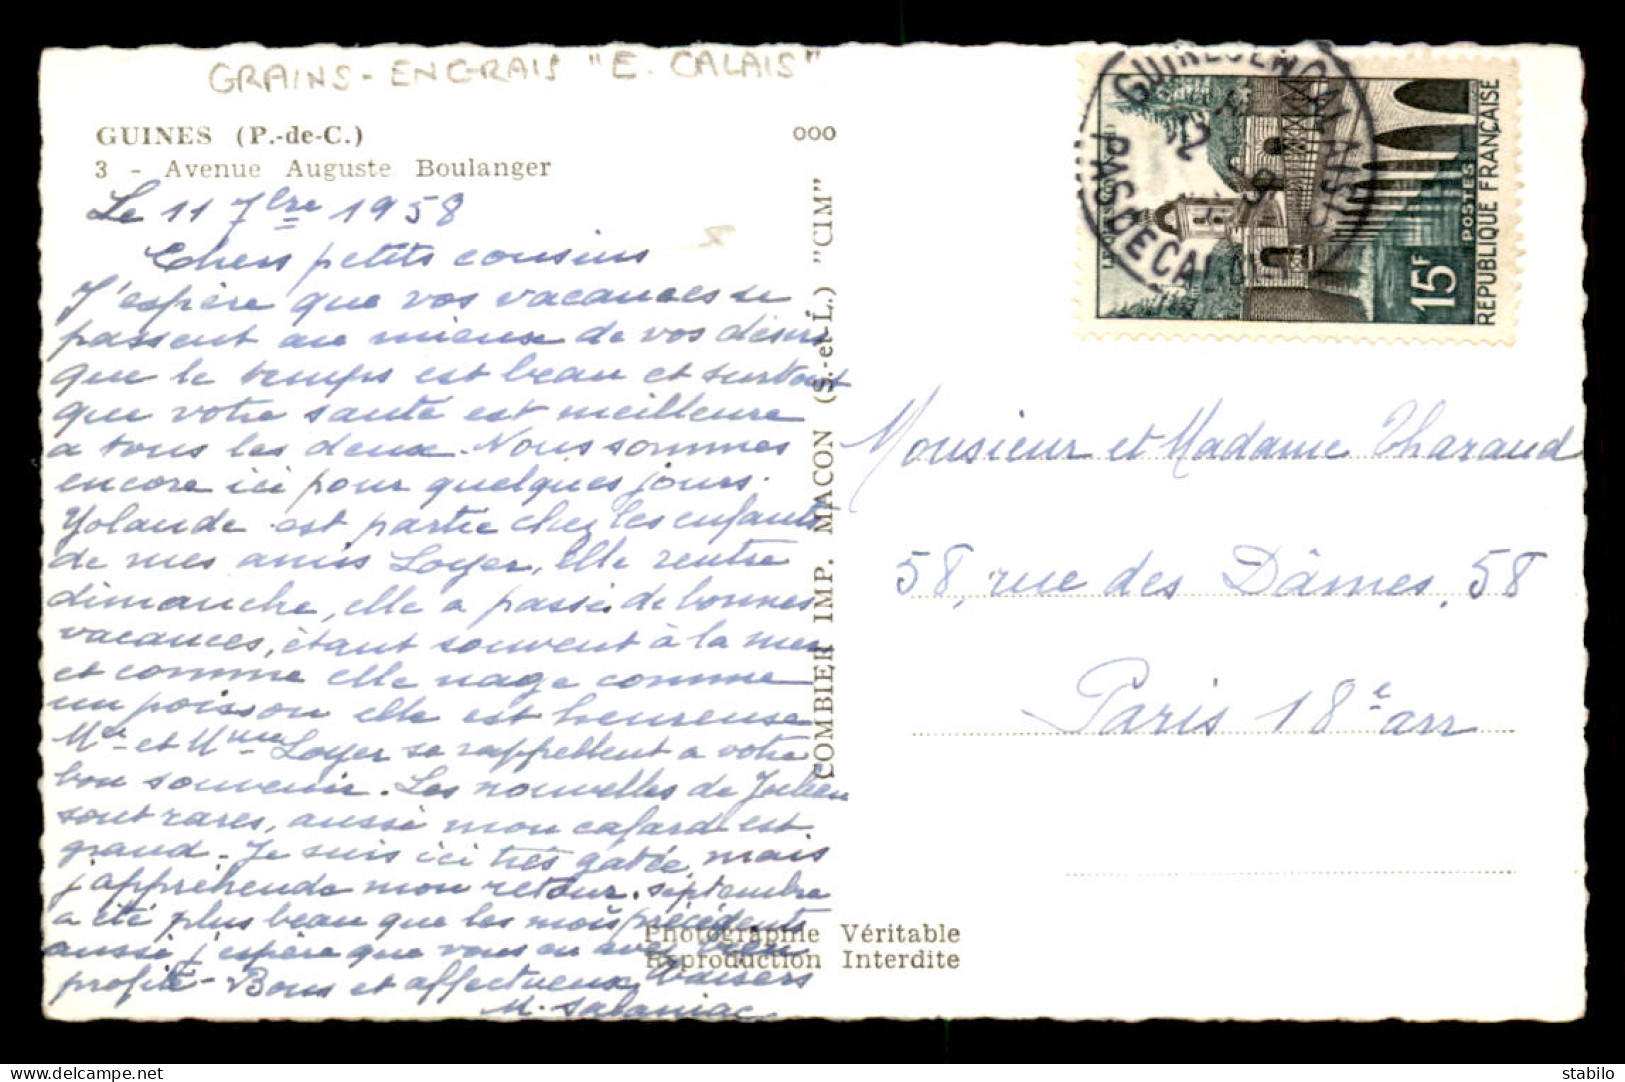 GRAINS - ENGRAIS "E. CALAIS"
GUINES (P.-de-C.)
3 - Avenue Auguste Boulanger
ooo
Le 11 7bre 1958
Chers petits cousins
J'espère que vos vacances se
passent au mieux de vos désirs
que le temps est beau et surtout
que votre santé est meilleure
a tous les deux. Nous sommes
encore ici pour quelques jours.
Yolande est partie chez les enfants
de mes amis Loyer, elle rentre
dimanche, elle a passé de bonnes
vacances, étant souvent à la mer
et comme elle nage comme
un poisson elle est heureuse
Mr et Mme Loyer se rappellent a votre
bon souvenir. Les nouvelles de Julien
sont rares, aussi mon cafard est
grand - Je suis ici très gatée, mais
j'appréhende mon retour. septembre
a été plus beau que les mois précédents
aussi j'espère que vous en avez bien
profité - Bons et affectueux baisers
COMBIER IMP. MACON (S.-et-L.) "CIM"
Photographie Véritable
Reproduction Interdite
PAS DE CALAIS
15F
POSTES
REPUBLIQUE FRANÇAISE
Monsieur et Madame Tharaud
58, rue des Dâmes, 58
Paris 18e arr
stabilo
www.delcampe.net